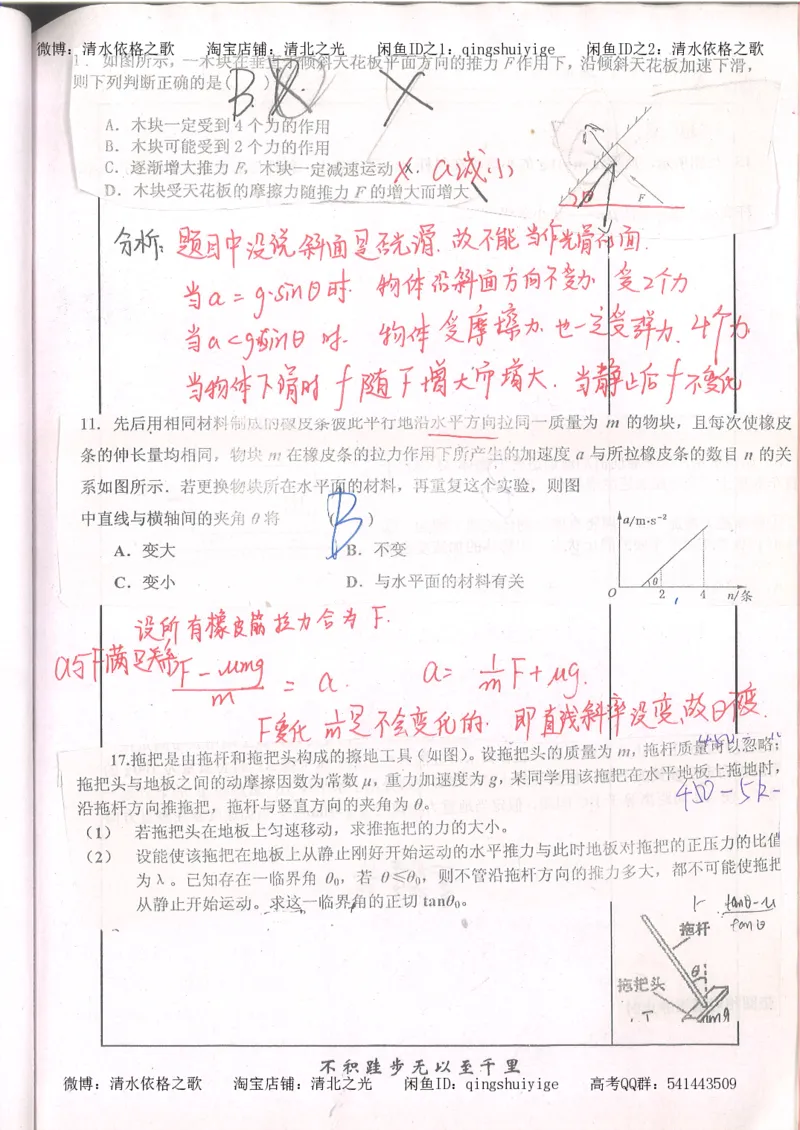 微博：清水依格之歌 淘宝店铺：清北之光 闲鱼ID之1：qingshuiyige 闲鱼ID之2：清水依格之歌
1. 如图所示，一木块在垂直于倾斜天花板平面方向的推力 F 作用下，沿倾斜天花板加速下滑，
则下列判断正确的是( )
B.
A．木块一定受到 4 个力的作用
B．木块可能受到 2 个力的作用
C．逐渐增大推力 F，木块一定减速运动 × a减小
D．木块受天花板的摩擦力随推力 F 的增大而增大
θ
F
分析: 题目中没说斜面是否光滑. 故不能当作光滑斜面.
当a = g·sinθ时. 物体沿斜面方向不受力 受2个力
当a<gsinθ 时. 物体受摩擦力. 也一定受弹力. 4个力
当物体下滑时 f 随 F 增大而增大. 当静止后 f 不变化
11. 先后用相同材料制成的橡皮条彼此平行地沿水平方向拉同一质量为 m 的物块，且每次使橡皮
条的伸长量均相同，物块 m 在橡皮条的拉力作用下所产生的加速度 a 与所拉橡皮条的数目 n 的关
系如图所示．若更换物块所在水平面的材料，再重复这个实验，则图
中直线与横轴间的夹角 θ 将 ( B )
A．变大 B．不变
C．变小 D．与水平面的材料有关
a/m·s⁻²
θ
O 2 4 n/条
设所有橡皮筋拉力合为 F.
a与F满足关系 F-μmg/m = a. a= 1/m F+μg.
F变化 1/m是不会变化的. 即直线斜率没变,故θ不变.
17.拖把是由拖杆和拖把头构成的擦地工具（如图）。设拖把头的质量为 m，拖杆质量可以忽略；
拖把头与地板之间的动摩擦因数为常数 μ，重力加速度为 g，某同学用该拖把在水平地板上拖地时，
沿拖杆方向推拖把，拖杆与竖直方向的夹角为 θ。
450-5k-
（1） 若拖把头在地板上匀速移动，求推拖把的力的大小。
（2） 设能使该拖把在地板上从静止刚好开始运动的水平推力与此时地板对拖把的正压力的比值
为 λ。已知存在一临界角 θ₀，若 θ≤θ₀，则不管沿拖杆方向的推力多大，都不可能使拖把
从静止开始运动。求这一临界角的正切 tanθ₀。
tanθ-μ
tanθ
拖杆
θ
拖把头
mg
不积跬步无以至千里
微博：清水依格之歌 淘宝店铺：清北之光 闲鱼ID：qingshuiyige 高考QQ群：541443509